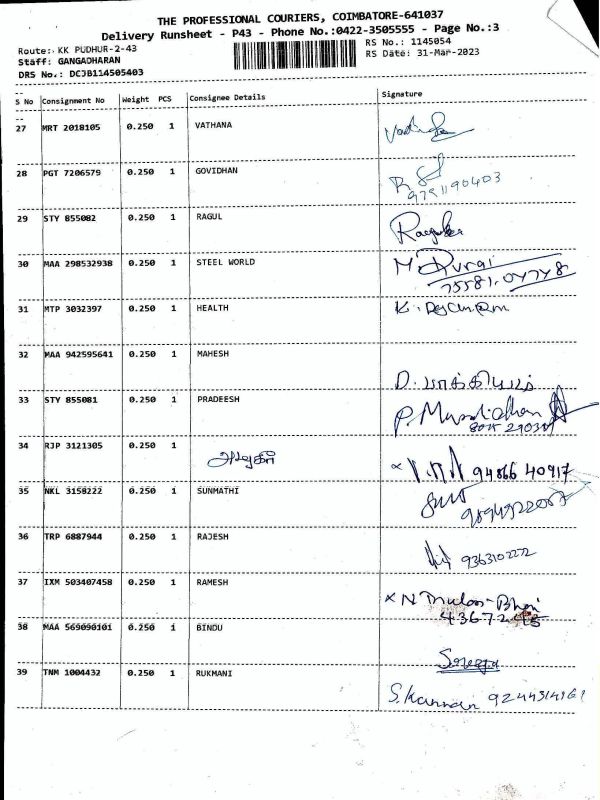 THE PROFESSIONAL COURIERS, COIMBATORE-641037
Delivery Runsheet - P43 - Phone No.:0422-3505555 - Page No.:3
Route: KK PUDHUR-2-43 RS No.: 1145054
Staff: GANGADHARAN RS Date: 31-Mar-2023
DRS No.: DCJB114505403
S No Consignment No Weight PCS Consignee Details Signature
27 MRT 2018105 0.250 1 VATHANA
28 PGT 7206579 0.250 1 GOVIDHAN
9791190403
29 STY 855082 0.250 1 RAGUL
30 MAA 298532938 0.250 1 STEEL WORLD M. Durai
75581.04748
31 MTP 3032397 0.250 1 HEALTH
32 MAA 942595641 0.250 1 MAHESH
D. பாக்கியம்
33 STY 855081 0.250 1 PRADEESH
34 RJP 3121305 0.250 1
94866 40917
35 NKL 3158222 0.250 1 SUNMATHI
36 TRP 6887944 0.250 1 RAJESH
9363102272
37 IXM 503407458 0.250 1 RAMESH
38 MAA 569090101 0.250 1 BINDU
39 TNM 1004432 0.250 1 RUKMANI
S. Kannan 9244314161